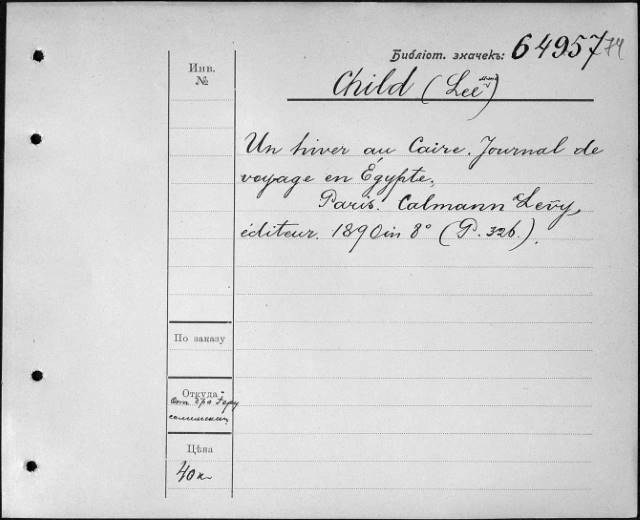 Библіот. значекъ: 64957
74
Инв.
№
Child (Lee Mme)
Un hiver au Caire. Journal de
voyage en Égypte.
Paris. Calmann Lévy,
éditeur. 1890 in 8° (P. 326.).
По заказу
Откуда:
Цѣна
40 к